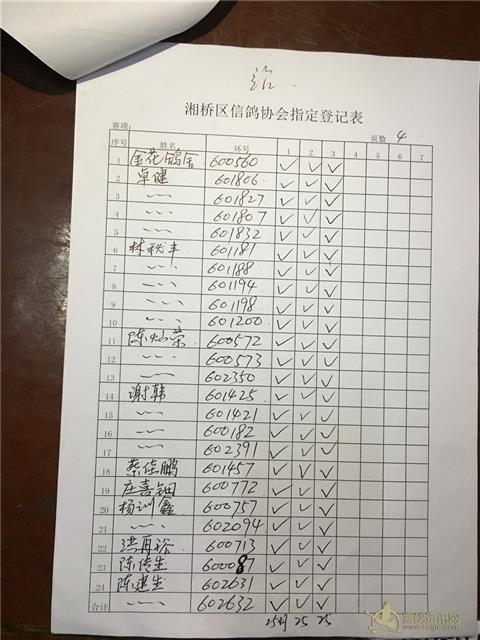 湘桥区信鸽协会指定登记表
赛项: 页数 4
序号 姓名 环号 1 2 3 4 5 6 7
1 金花鸽舍 600560 ✓ ✓ ✓
2 卓健 601806 ✓ ✓ ✓
3 〃 601827 ✓ ✓ ✓
4 〃 601807 ✓ ✓ ✓
5 〃 601832 ✓ ✓ ✓
6 林秋丰 601181 ✓ ✓ ✓
7 〃 601188 ✓ ✓ ✓
8 〃 601194 ✓ ✓ ✓
9 〃 601198 ✓ ✓ ✓
10 〃 601200 ✓ ✓ ✓
11 陈灿荣 600572 ✓ ✓ ✓
12 〃 600573 ✓ ✓ ✓
13 〃 602350 ✓ ✓ ✓
14 谢韩 601425 ✓ ✓ ✓
15 〃 601421 ✓ ✓ ✓
16 〃 600182 ✓ ✓ ✓
17 〃 602391 ✓ ✓ ✓
18 蔡佳鹏 601457 ✓ ✓ ✓
19 庄喜钿 600772 ✓ ✓ ✓
20 杨训鑫 600757 ✓ ✓ ✓
21 〃 602094 ✓ ✓ ✓
22 洪再裕 600713 ✓ ✓ ✓
23 陈传生 600087 ✓ ✓ ✓
24 陈建生 602631 ✓ ✓ ✓
合计 〃 602632 ✓ ✓ ✓
25 25